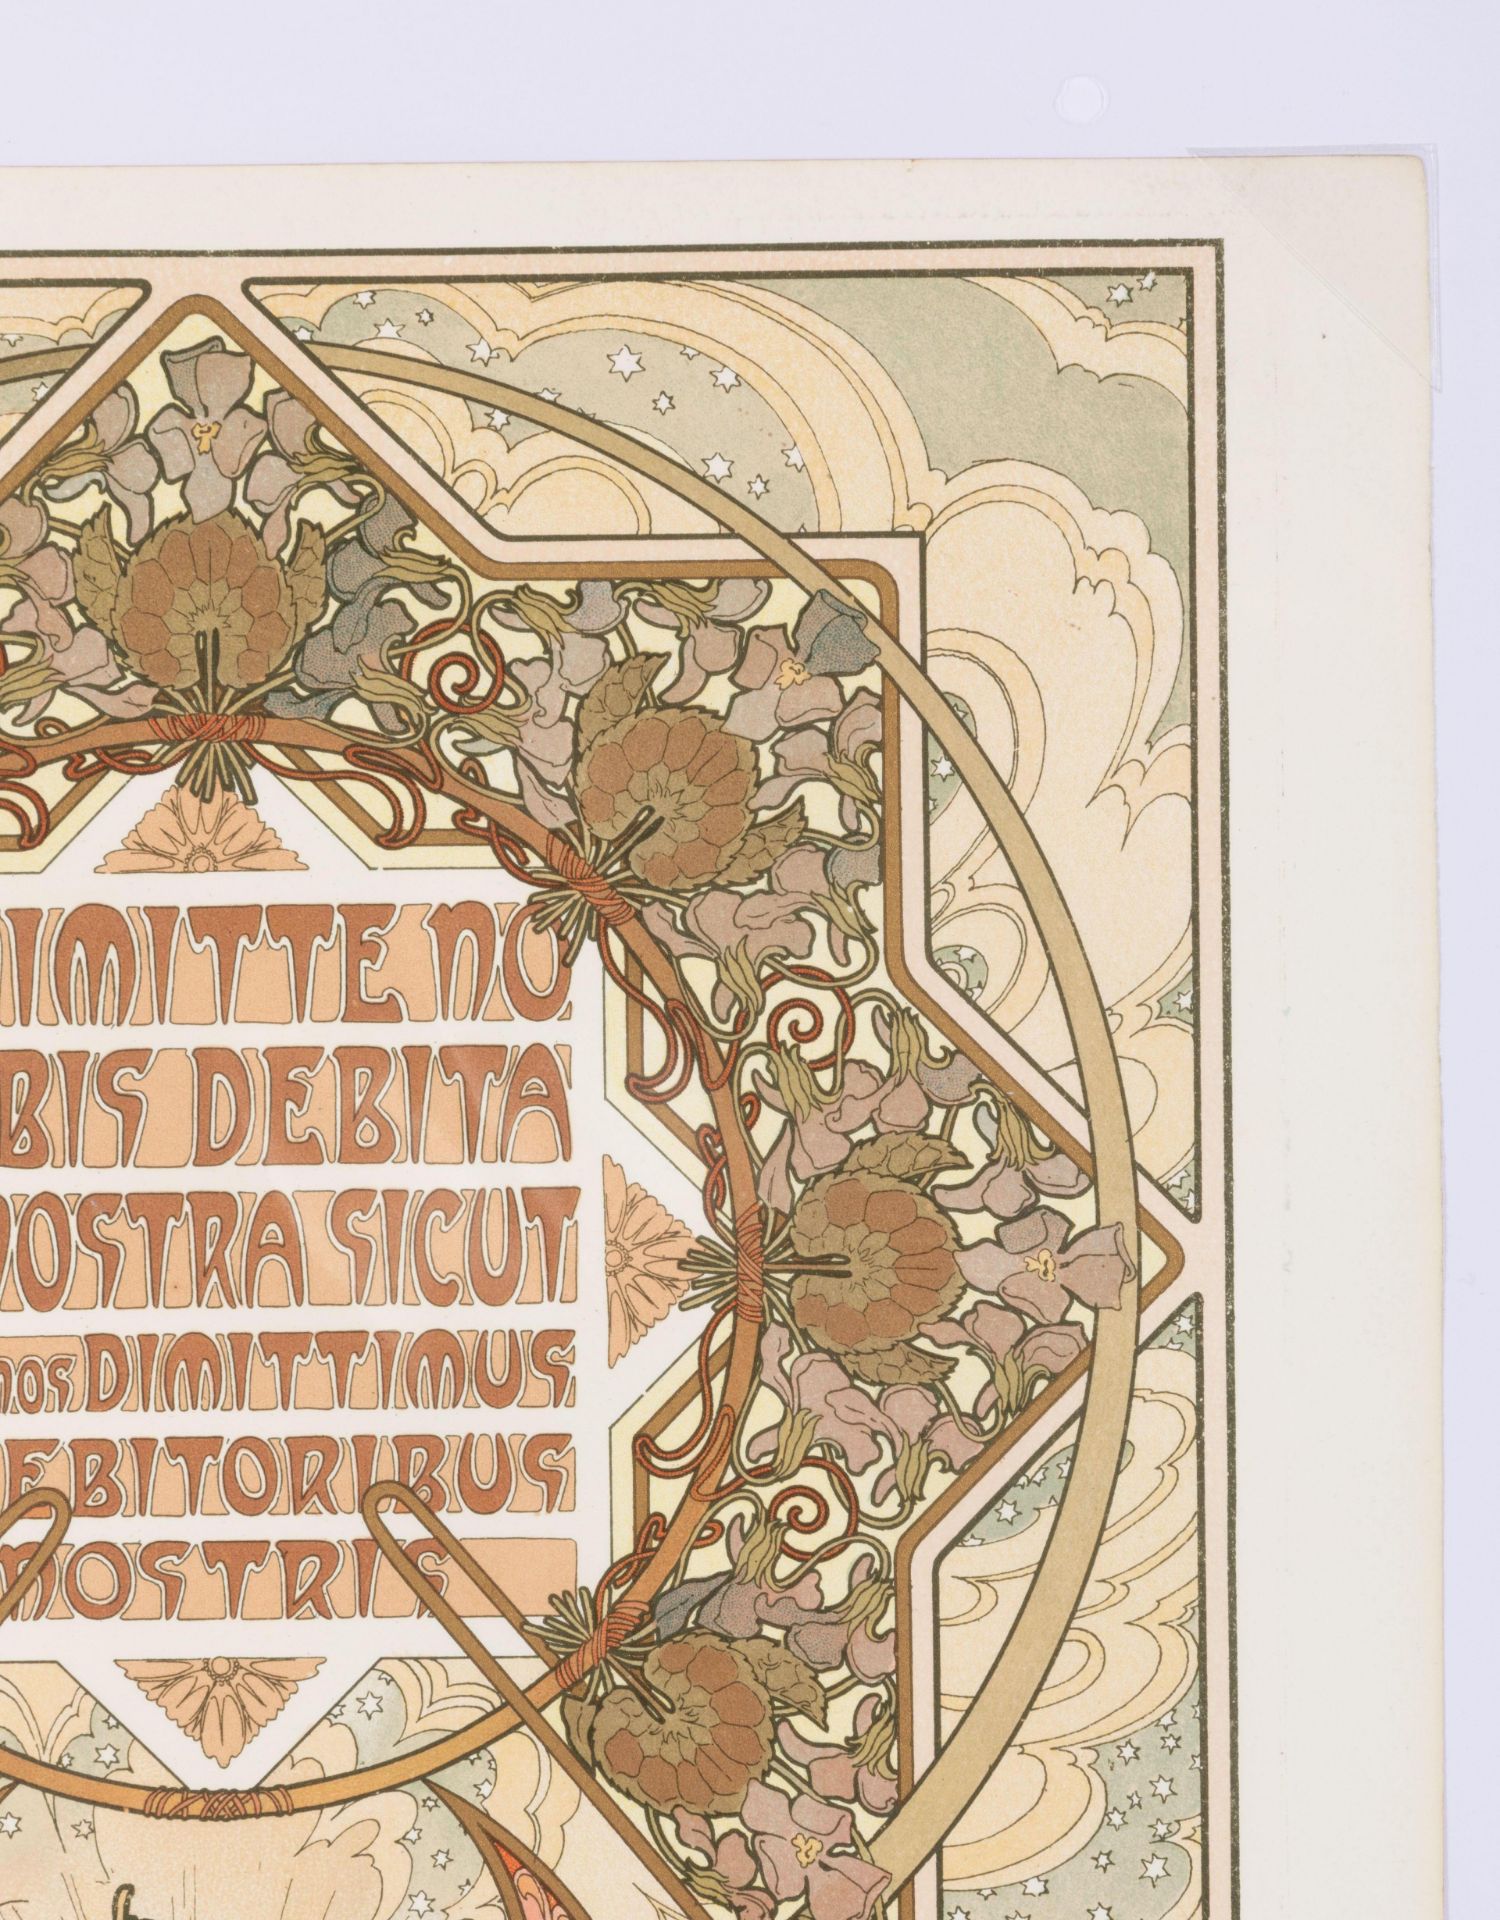 IMITTE NO
BIS DEBITA
NOSTRA SICUT
NOS DIMITTIMUS
EBITORIBUS
NOSTRIS